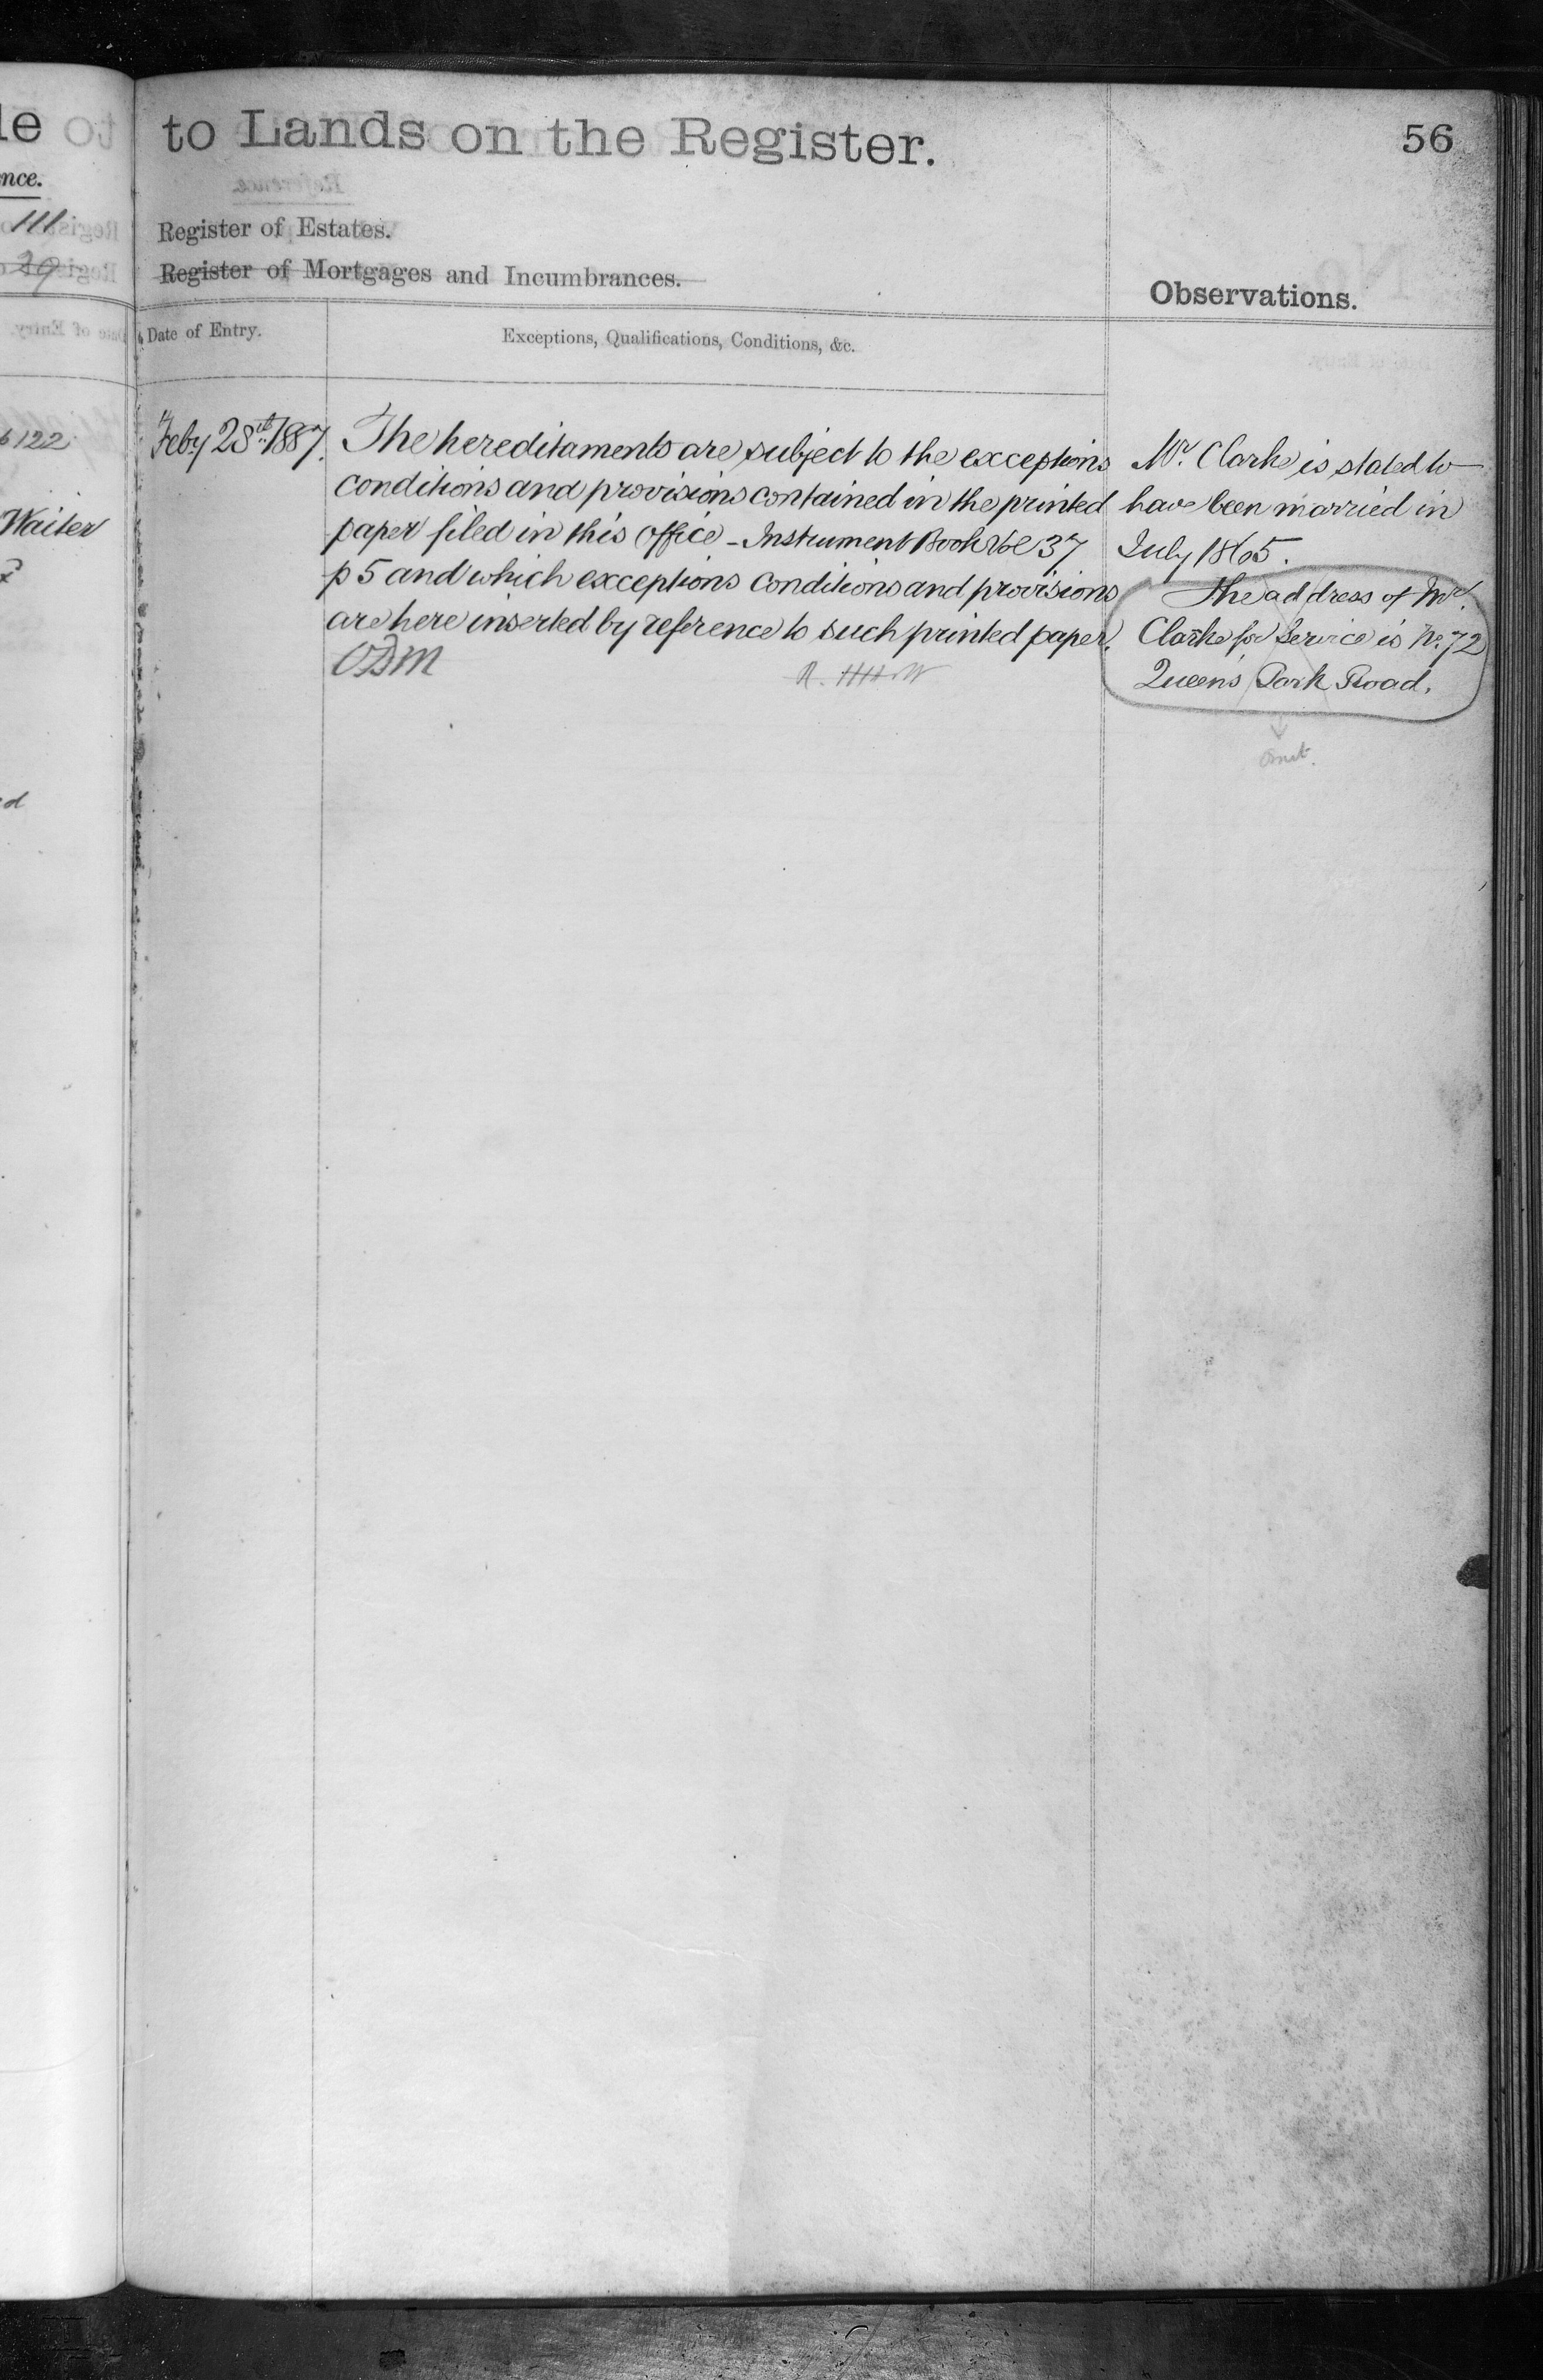 le
nce.
111
29
6122
Waiter
d
to Lands on the Register.
56
Register of Estates.
Register of Mortgages and Incumbrances.
Observations.
Date of Entry.
Exceptions, Qualifications, Conditions, &c.
Feby 28th 1887.
The hereditaments are subject to the exceptions
conditions and provisions contained in the printed
paper filed in this Office - Instrument Book Vol 37
p 5 and which exceptions conditions and provisions
are here inserted by reference to such printed paper.
Mr. Clarke is stated to
have been married in
July 1865.
The address of Mr.
Clarke for Service is No. 72
Queen's Park Road.
Omit.